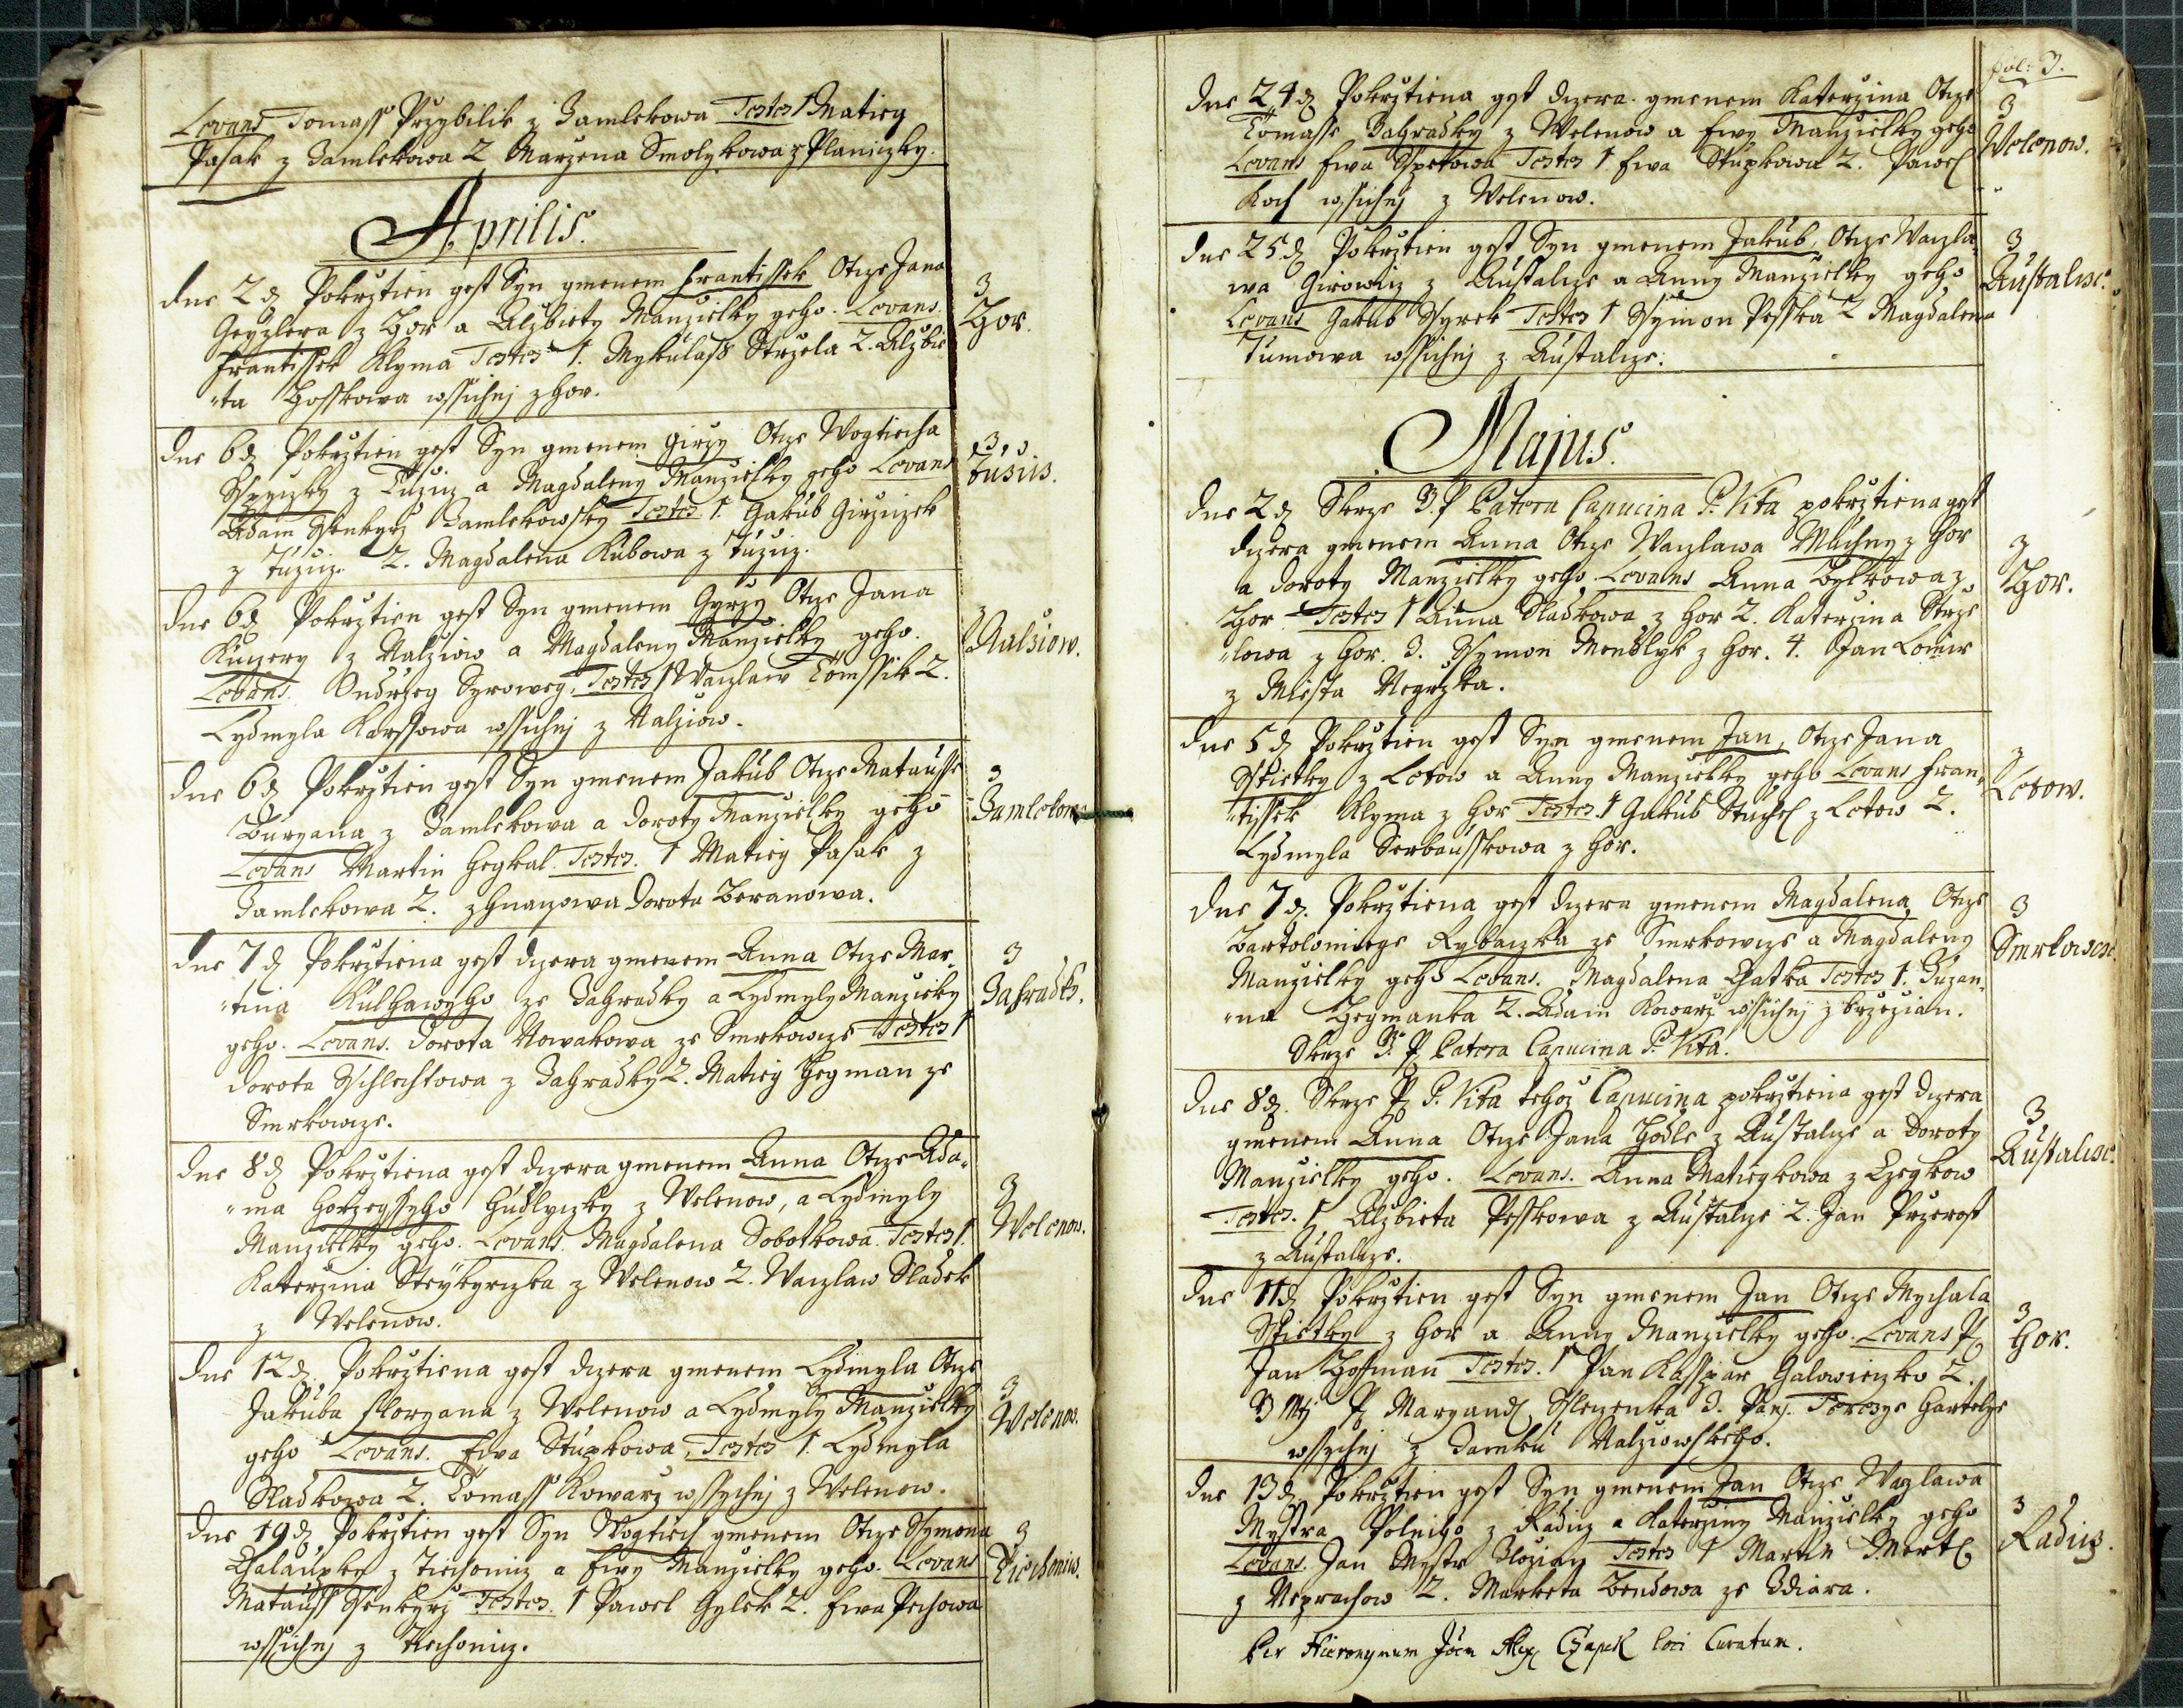 Levans Tomass Przybilik z Zamlekowa Testes 1 Matieg
Pasak z Zamlekowa 2 Marzena Smolykowa z Planiczky.
Aprilis.
dne 2 d. Pokrztien gest Syn gmenem Frantissek Otcze Jana
Geyzlera z Hor a Alzbiety Manzielky geho. Levans.
Frantissek Klyma Testes 1. Mykulass Strzela 2. Alzbie
ta Hosskowa wssichnj z Hor.
Hor.
dne 6 d. Pokrztien gest Syn gmenem Girzy Otcze Wogtiecha
z Tuzicz a Magdaleny Manzielky geho Levans
Adam Ssenkyrz Zamlekowsky Testes 1. Gakub Girziczek
z Tuzicz. 2. Magdalena Kubowa z Tuzicz.
dne 6 d. Pokrztien gest Syn gmenem Gyrzy Otcze Jana
Kuczery z Nalziow a Magdaleny Manzielky geho.
Levans. Ondrzeg Syroweg, Testes 1 Waczlaw Tomssik 2.
Lydmyla Karssowa wssichnj z Nalziow.
Nalziow.
dne 6 d. Pokrztien gest Syn gmenem Jakub Otcze Matausse
Buryana z Zamlekowa a Doroty Manzielky geho
Levans Martin Hegkal. Testes. 1 Matieg Pasak z
Zamlekowa 2. z Hnaczowa Dorota Beranowa.
Zamlekow
dne 7 d. Pokrztiena gest dczera gmenem Anna Otcze Mar
tina Kulhaweyho ze Zahradky a Lydmyly Manzielky
geho. Levans. Dorota Nowakowa ze Smrkowcze Testes 1
Dorota Sslechtowa z Zahradky 2. Matieg Hegman ze
Smrkowcze.
Zahradk.
dne 8 d. Pokrztiena gest dczera gmenem Anna Otcze Ada
ma Horzegssyho Hudlyczky z Welenow, a Lydmyly
Manzielky geho. Levans. Magdalena Sobotkowa. Testes 1.
Katerzina z Welenow 2. Waczlaw Sladek
z Welenow.
Welenow.
dne 12 d. Pokrztiena gest dczera gmenem Lydmyla Otcze
Jakuba Floryana z Welenow a Lydmyly Manzielky
geho Levans. Ewa Stupkowa, Testes 1. Lydmyla
Sladkowa 2. Tomass Kowarz wssychnj z Welenow.
Welenow.
dne 19 d. Pokrztien gest Syn Wogtiech gmenem Otcze Ssymona
Chalaupky z Tiechonicz a Ewy Manzielky geho. Levans
Matauss Ssenkyrz Testes. 1 Pawel Gylek 2. Ewa Pechowa
wssichnj z Tiechonicz.
Tiechonicz.
fol: 3.
dne 24 d. Pokrztiena gest dczera gmenem Katerzina Otcze
Tomasse Zahradky z Welenow a Ewy Manzielky geho
Levans Ewa Testes 1 Ewa Stupkowa 2. Pawel
Koch wssichnj z Welenow.
Welenow.
dne 25 d. Pokrztien gest Syn gmenem Jakub, Otcze Waczla
wa Girowicz z Austalcze a Anny Manzielky geho
Levans Gakub Syrek Testes 1 Ssymon Pesska 2 Magdalena
Tumowa wssichnj z Austalcze.
Austalcze.
Majus.
dne 2 d. Skrze Patera Capucina P. Vita pokrztiena gest
dczera gmenem Anna Otcze Waczlawa Muchny z Hor
a Doroty Manzielky geho. Levans Anna z
Hor Testes 1 Anna Sladkowa z Hor 2. Katerzina Strze
lowa z Hor. 3. Ssymon Mendlyk z Hor. 4. Jan
z Miesta
Hor.
dne 5 d. Pokrztien gest Syn gmenem Jan, Otcze Jana
Skietky z Letow a Anny Manzielky geho Levans Fran
tissek Klyma z Hor Testes 1 Gakub Stuchl z Letow 2.
Lydmyla Serbausskowa z Hor.
Letow.
dne 7 d. Pokrztiena gest dczera gmenem Magdalena, Otcze
Bartolomiege Rybaczka ze Smrkowcze a Magdaleny
Manzielky geho Levans. Magdalena Chatka Testes 1. Zuzan
na Hegmanka 2. Adam Kowarz wssichnj z Brzezian.
Skrze Patera Capucina P. Vita.
Smrkowcze.
dne 8 d. Skrze P. Vita tehoz Capucina pokrztiena gest dczera
gmenem Anna Otcze Jana Hodle z Austalcze a Doroty
Manzielky geho. Levans. Anna Matiegkowa z Czegkow
Testes. 1 Alzbieta Pesskowa z Austalcze 2. Jan Przerost
z Austalcze.
Austalcze.
dne 11 d. Pokrztien gest Syn gmenem Jan Otcze Mychala
Skietky z Hor a Anny Manzielky geho. Levans P.
Jan Hoffman Testes. 1 Pan Kasspar Halowieczko 2.
Maryanda 3. Hartelys
wssychnj z Zamku Nalziowskeho.
Hor.
dne 13 d. Pokrztien gest Syn gmenem Jan Otcze Waczlawa
Mystra Polniho z Radicz a Katerziny Manzielky geho
Levans. Jan Mystr Testes 1 Martin Mertl
z Neprachow 2. Marketa Bendowa ze Zdiara.
Radicz.
Per Hieronymum Joan Alex Czapek loci Curatum.